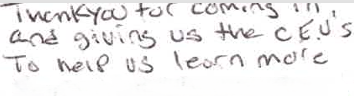 Thankyou for coming in,
and giving us the CEU's
To help us learn more